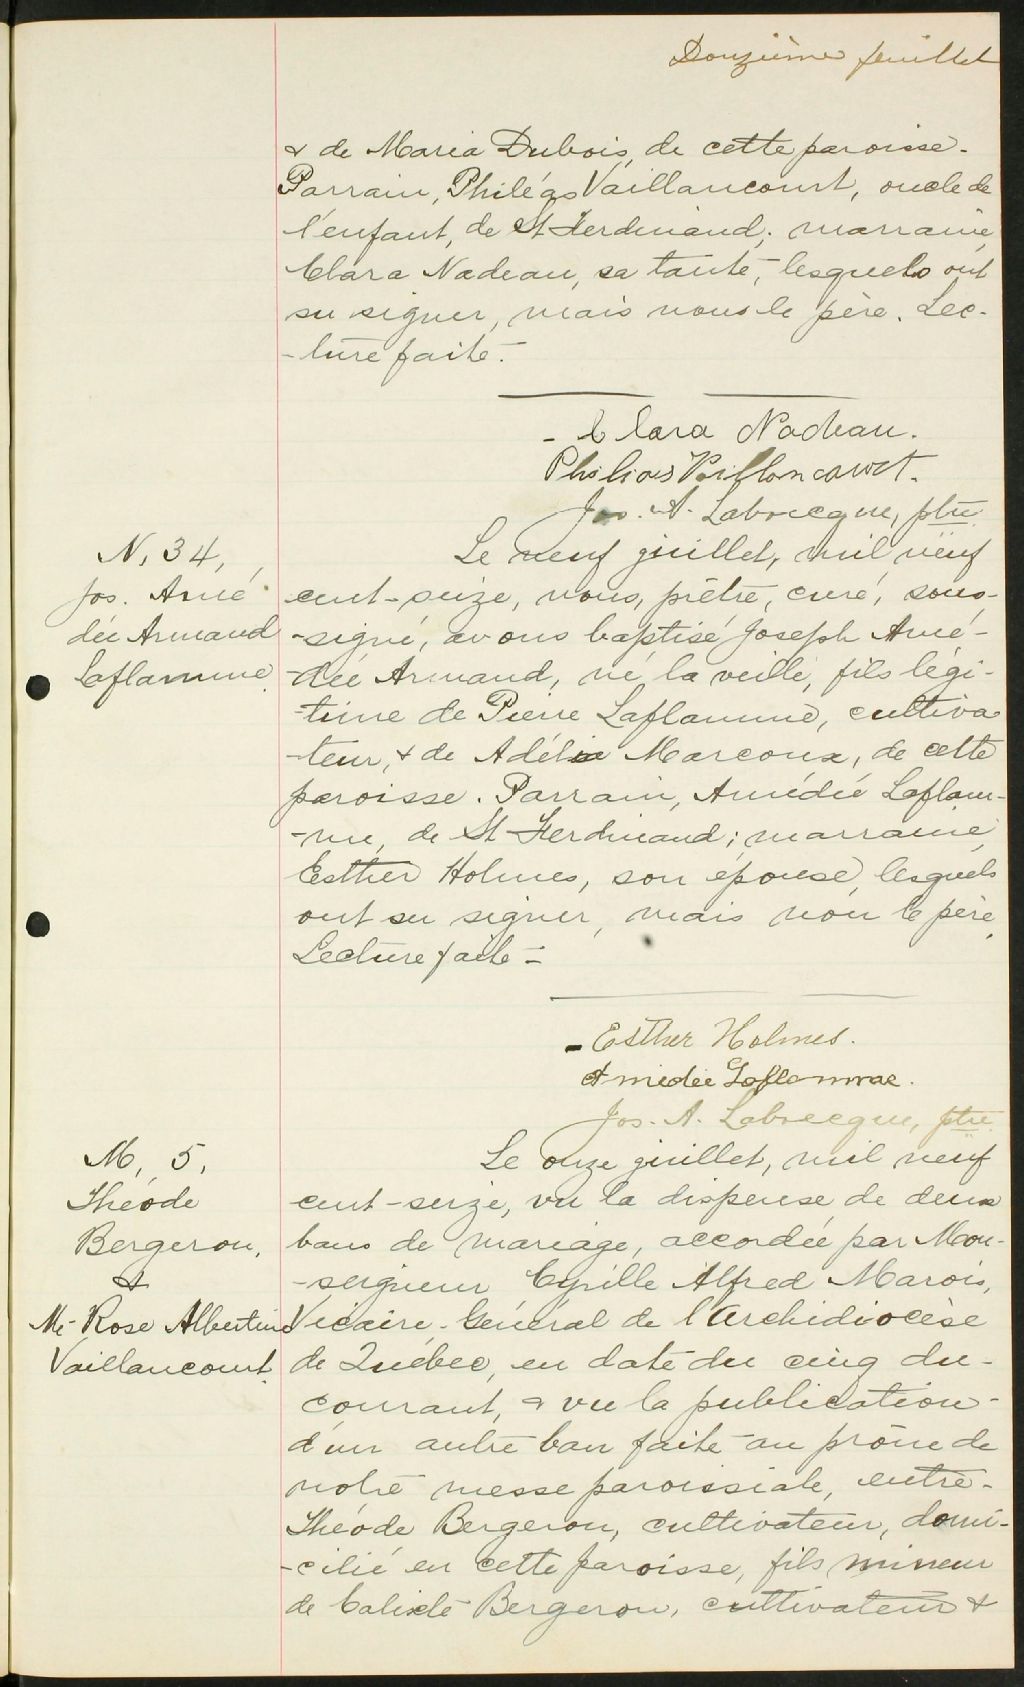 Douzième feuillet
& de Maria Dubois, de cette paroisse.
Parrain, Philéas Vaillancourt, oncle de
l'enfant, de St Ferdinand; marraine,
Clara Nadeau, sa tante, lesquels ont
su signer, mais nous le père. Lec-
-ture faite.-
- Clara Nadeau.
Philias Vaillancourt.
Jos. A. Labrecque, ptre
N. 34,
Jos. Amé
dée Armand
Laflamme
Le neuf juillet, mil neuf
cent-seize, nous, prêtre, curé, sous-
-signé, avons baptisé Joseph Amé-
-dée Armand, né la veille, fils légi-
-time de Pierre Laflamme, cultiva
-teur, & de Adélia Marcoux, de cette
paroisse. Parrain, Amédée Laflam-
-me, de St Ferdinand; marraine,
Esther Holmes, son épouse, lesquels
ont su signer, mais non le père.
Lecture faite -
- Esther Holmes.
Amédée Laflamme.
Jos. A. Labrecque, ptre
M, 5,
Théode
Bergeron,
&
Me-Rose Albertine
Vaillancourt.
Le onze juillet, mil neuf
cent-seize, vu la dispense de deux
bans de mariage, accordée par Mon-
-seigneur Cyrille Alfred Marois,
Vicaire-Général de l'Archidiocèse
de Québec, en date du cinq du-
courant, & vu la publication-
d'un autre ban faite au prône de
notre messe paroissiale, entre-
Théode Bergeron, cultivateur, domi-
-cilié en cette paroisse, fils mineur
de Calixte Bergeron, cultivateur &